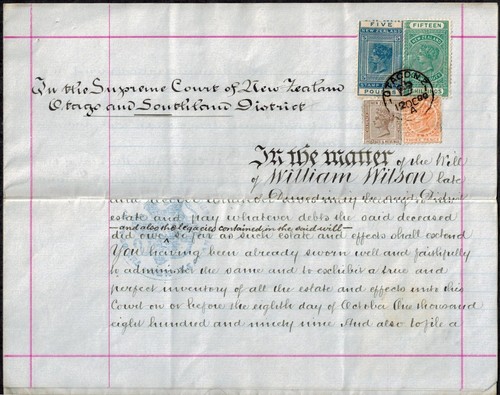 FIVE
NEW ZEALAND
POUNDS
FIFTEEN
NEW ZEALAND
OTAGO N.Z
12 OC 98
In the Supreme Court of New Zealand
Otago and Southland District
In the matter of the Will
of William Wilson late
estate and pay whatever debts the said deceased
and also the legacies contained in the said will
did owe so far as such estate and effects shall extend
You having been already sworn well and faithfully
to administer the same and to exhibit a true and
perfect inventory of all the estate and effects unto this
Court on or before the eighth day of October One thousand
eight hundred and ninety nine And also to file a